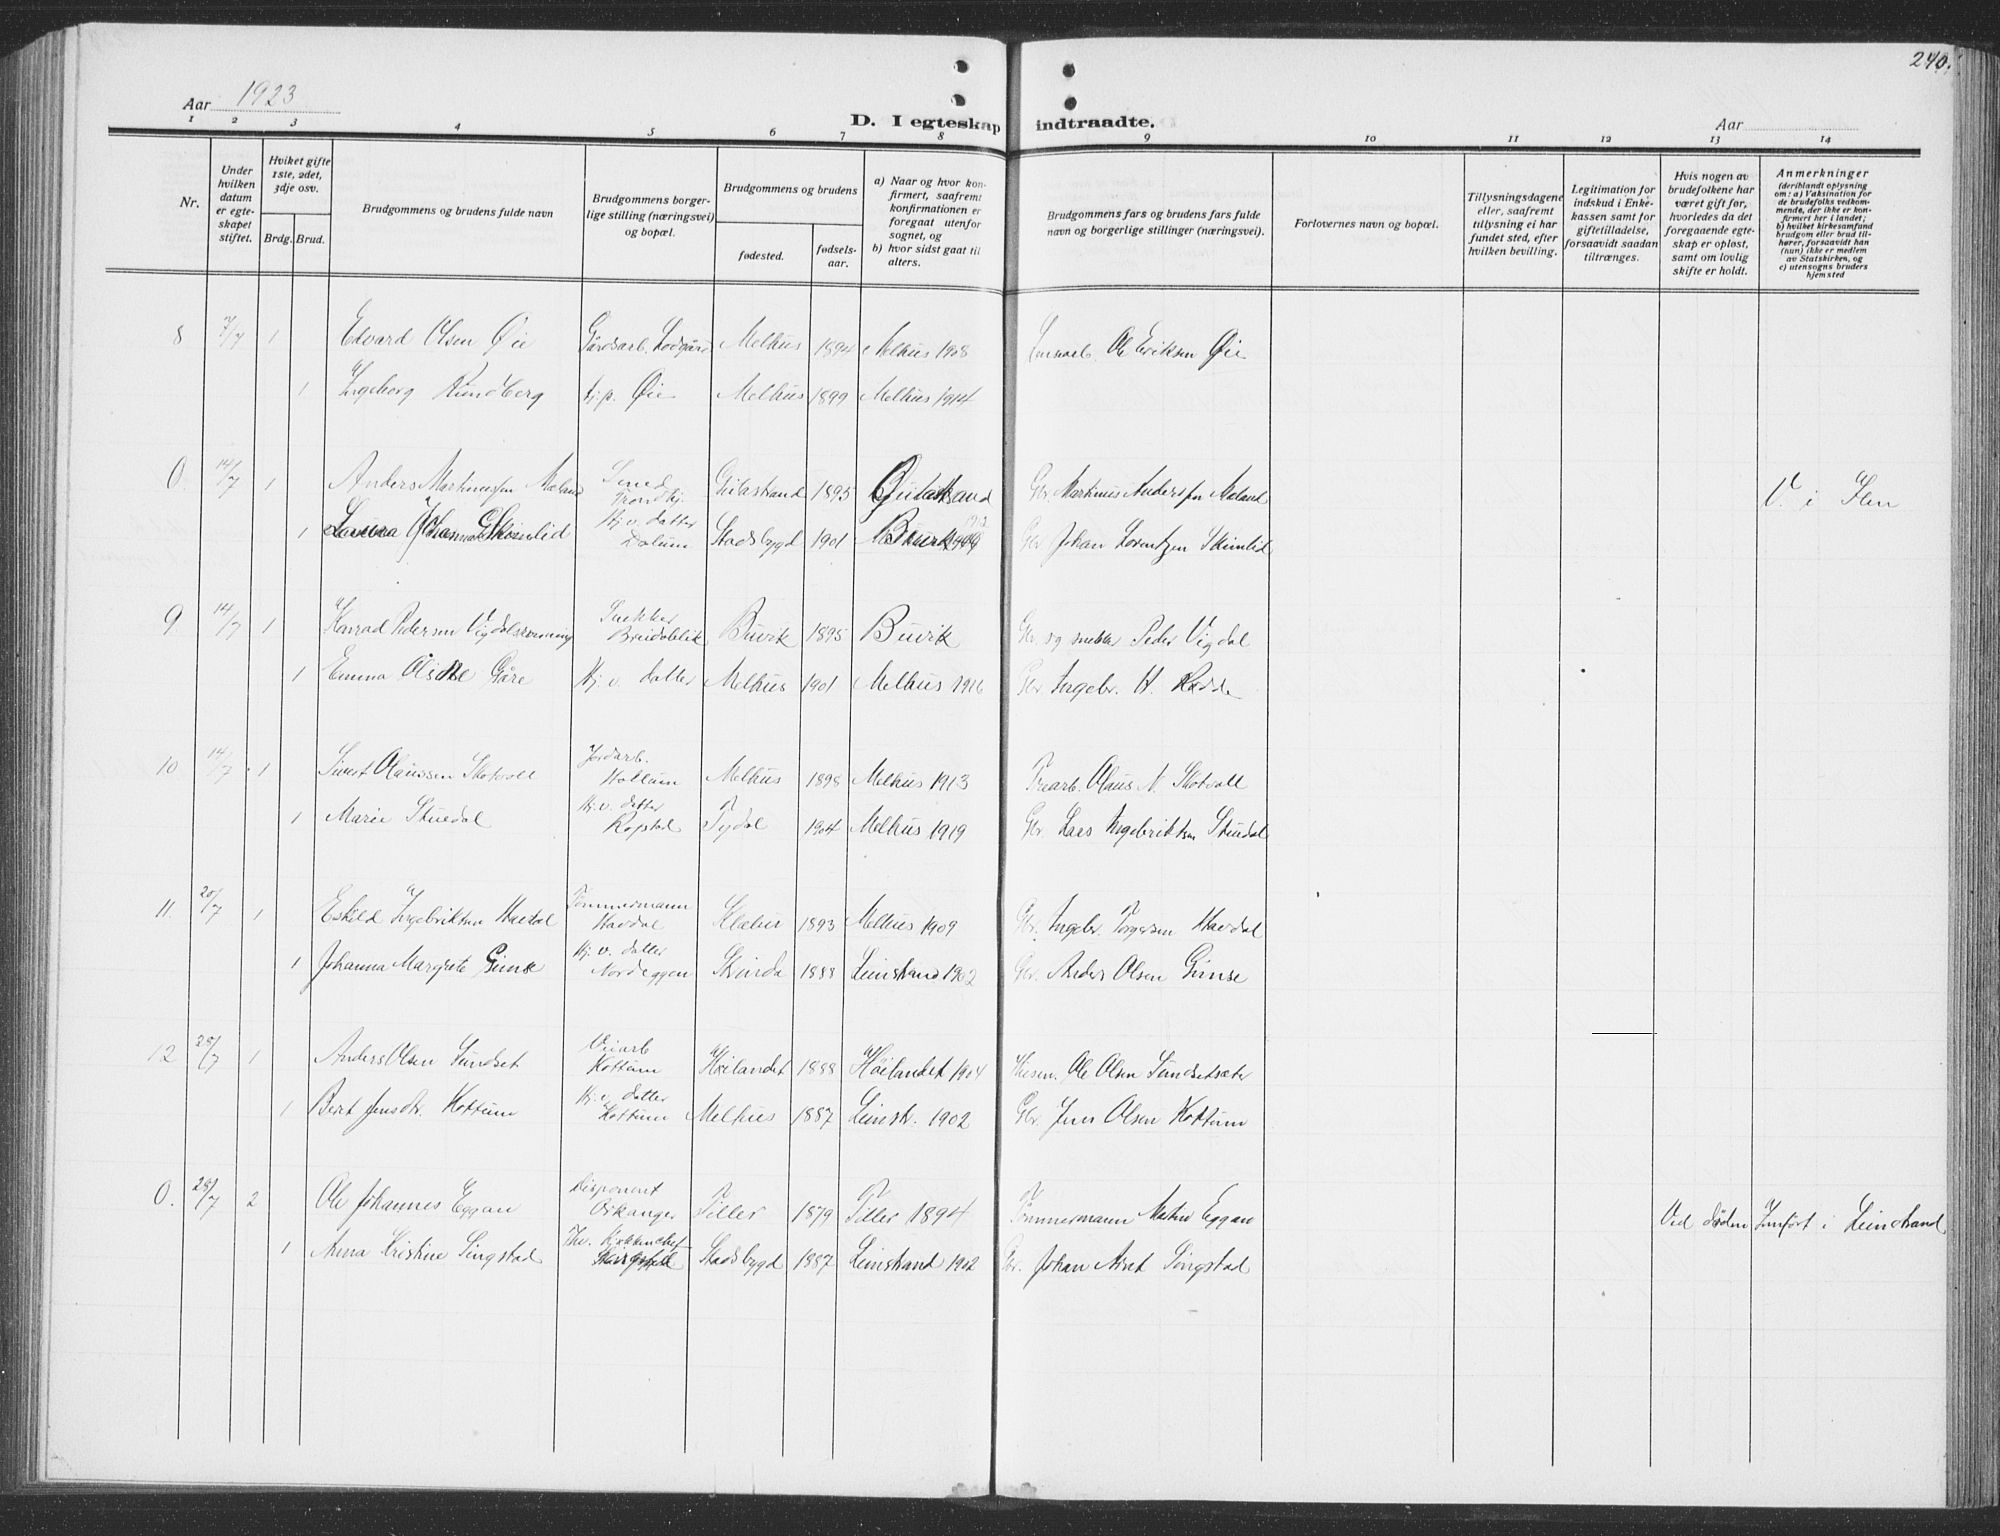 240.
Aar 1923
D. I egteskap indtraadte.
Aar
1 2 3 4 5 6 7 8 9 10 11 12 13 14
Nr.
Under hvilken datum er egteskapet stiftet.
Hvilket gifte 1ste, 2det, 3dje osv.
Brdg. Brud.
Brudgommens og brudens fulde navn
Brudgommens borgerlige stilling (næringsvei) og bopæl.
Brudgommens og brudens
fødested.
fødselsaar.
a) Naar og hvor konfirmert, saafremt konfirmationen er foregaat utenfor sognet, og
b) hvor sidst gaat til alters.
Brudgommens fars og brudens fars fulde navn og borgerlige stillinger (næringsvei).
Forlovernes navn og bopæl.
Tillysningsdagene eller, saafremt tillysning ei har fundet sted, efter hvilken bevilling.
Legitimation for indskud i Enkekassen samt for giftetilladelse, forsaavidt saadan tiltrænges.
Hvis nogen av brudefolkene har været gift før, hvorledes da det foregaaende egteskap er opløst, samt om lovlig skifte er holdt.
Anmerkninger
(deriblandt oplysning om: a) Vaksination for de brudefolks vedkommende, der ikke er konfirmert her i landet; b) hvilket kirkesamfund brudgom eller brud tilhører, forsaavidt han (hun) ikke er medlem av Statskirken, og c) utensogns bruders hjemsted
8 7/7 1 Edvard Olsen Øie Gårdsarb. Melhus 1894 Melhus 1908 Ole Eriksen Øie
1 Ingeborg Rundberg Øie Melhus 1899 Melhus 1914
0. 14/7 1 Anders Martinussen Smed Trondhj. Geitastrand 1895 Geitastrand Gbr. Martinus Andersen V. i
1 Laura Johanna Hj. v. datter Stadsbygd 1901 Gbr. Johan Lorentzen
9 14/7 1 Konrad Pedersen Snekker Breidablik Buvik 1895 Buvik Gbr. og snekker Peder Vigdal
1 Emma Gåre Hj. v. datter Melhus 1901 Melhus 1916 Gbr. Ingebr. H.
10 14/7 1 Sivert Olaussen Skotvoll Jordarb. Melhus 1898 Melhus 1913 Olaus N. Skotvoll
1 Marie Stuedal Hj. v. datter Tydal 1904 Melhus 1919 Gbr. Lars Ingebriktsen Stuedal
11. 20/7 1 Eskild Ingebriktsen Havdal Tømmermann Havdal Klæbu 1893 Melhus 1909 Gbr. Ingebr. Torgersen Havdal
1 Johanna Margrete Gimse Hj. v. datter Nordeggen Strinda 1888 Leinstrand 1902 Gbr. Anders Olsen Gimse
12 28/7 1 Anders Olsen Sundset Veiarb Kottum Høilandet 1888 Høilandet 1904 Ole Olsen Sundsetsæter
1 Beret Jensdr. Kottum Hj. v. datter Kottum Melhus 1887 Leinstr. 1902 Gbr. Jens Olsen Kottum
0. 28/7 2 Ole Johannes Eggan Disponent Orkanger Tiller 1879 Tiller 1894 Tømmermann Martin Eggan Ved døden Innført i Leinstrand
1 Anna Kristine Singstad Stadsbygd 1887 Leinstrand 1902 Gbr. Johan Singstad